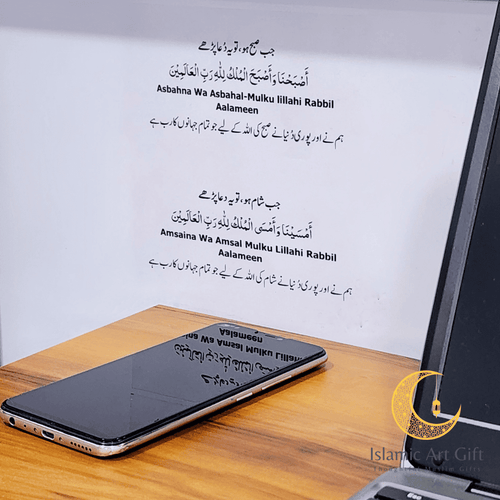 جب صبح ہو، تو یہ دُعا پڑھے
أَصْبَحْنَا وَأَصْبَحَ الْمُلْكُ لِلّٰهِ رَبِّ الْعَالَمِيْنَ
Asbahna Wa Asbahal-Mulku lillahi Rabbil
Aalameen
ہم نے اور پوری دُنیا نے صبح کی اللہ کے لیے جو تمام جہانوں کا رب ہے
جب شام ہو، تو یہ دعا پڑھے
أَمْسَيْنَا وَأَمْسَى الْمُلْكُ لِلّٰهِ رَبِّ الْعَالَمِيْنَ
Amsaina Wa Amsal Mulku Lillahi Rabbil
Aalameen
ہم نے اور پوری دُنیا نے شام کی اللہ کے لیے جو تمام جہانوں کا رب ہے
Islamic Art Gift
Esc